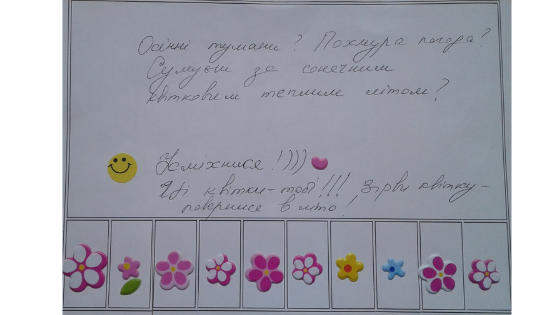 Осінні тумани? Похмура погода?
Сумуєш за сонячним
квітковим теплим літом?
Усміхнися!)))
Ці квітки-тобі!!! Зірви квітку-
повернися в літо!